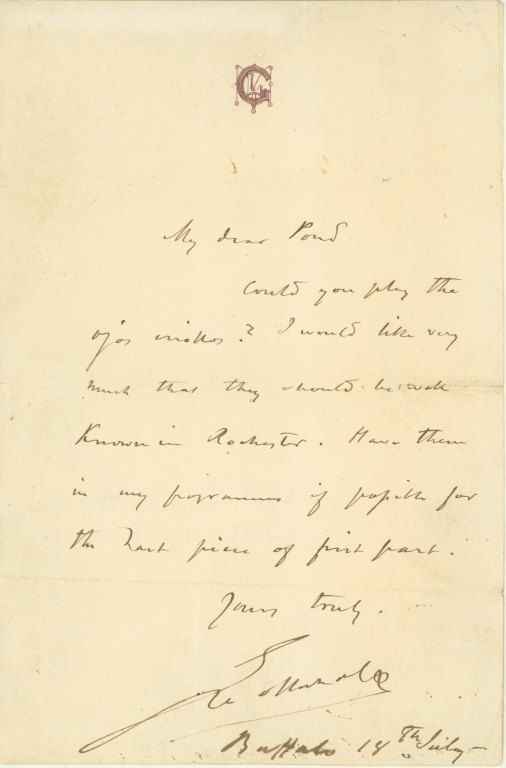 My dear Pond
Could you play the
ojos criollos? I would like very
much that they should be well
Known in Rochester. Have them
in my programme if possible for
the last piece of first part.
Yours truly.
Gottschalk
Buffalo 18th July